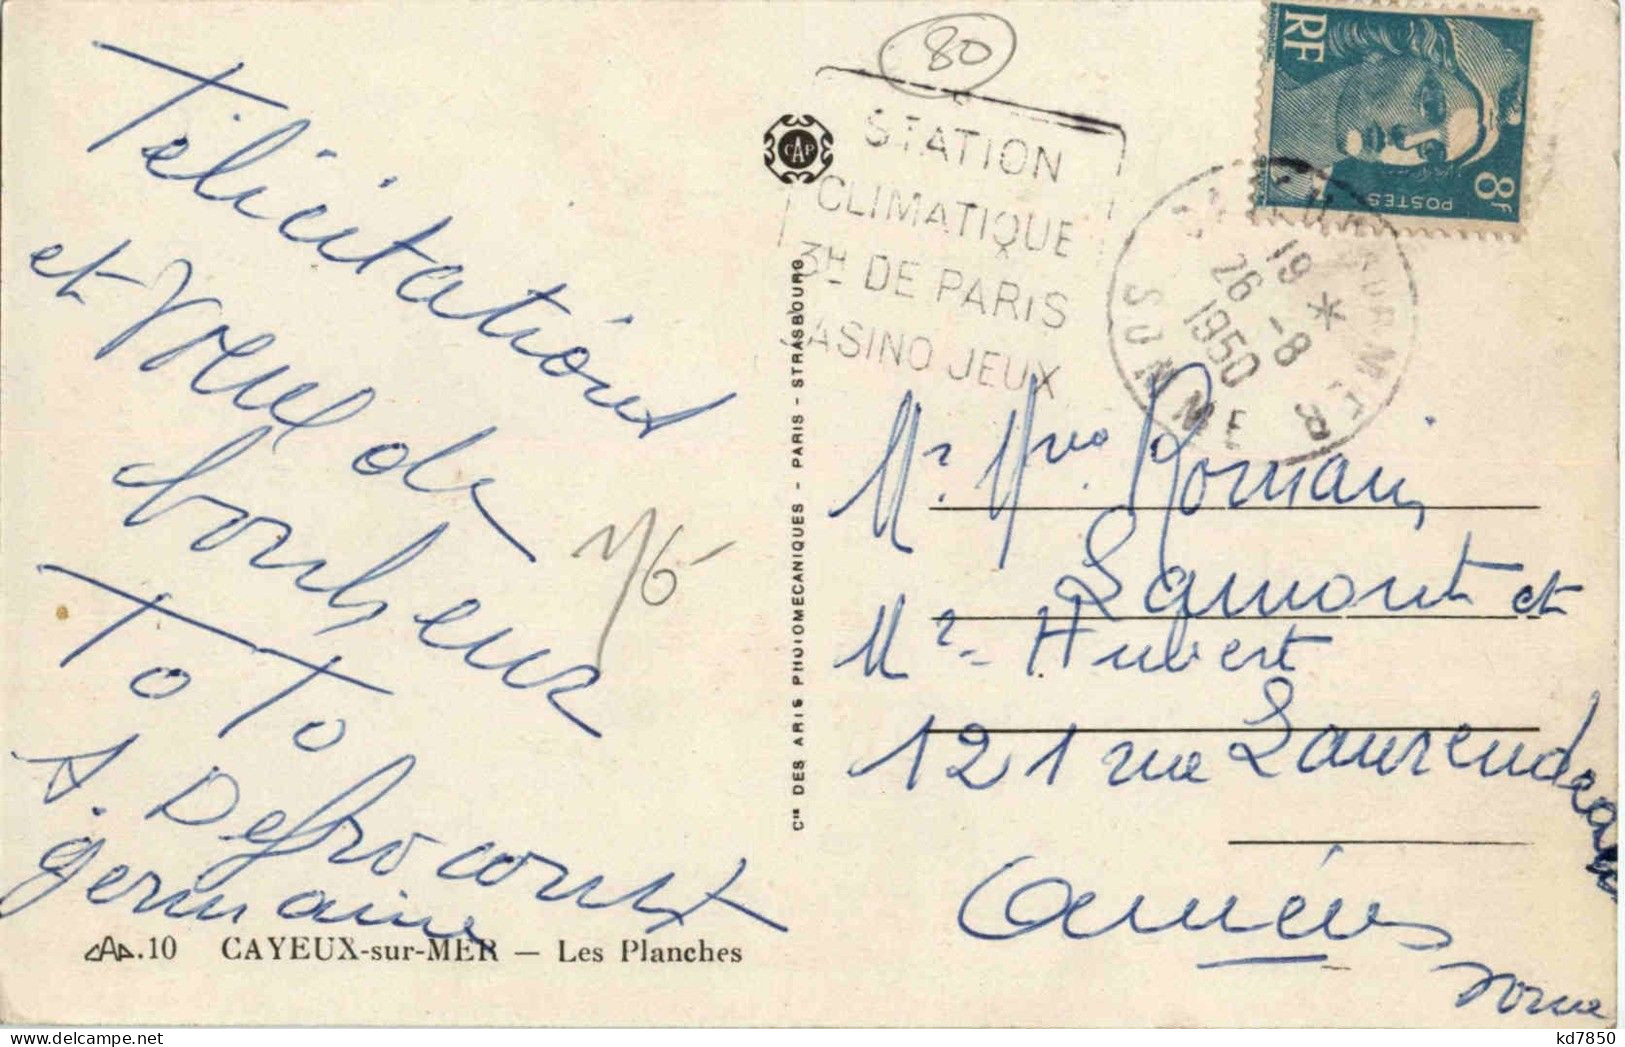 Félicitations
et Vœux de
bonheur
TO TO
A. Defrocourt
germaine
CAP.10 CAYEUX-sur-MER — Les Planches
Cie DES ARTS PHOTOMECANIQUES - PARIS - STRASBOURG
CAP
80
STATION
CLIMATIQUE
3H DE PARIS
CASINO JEUX
RF
POSTES
8F
19 *
26 -8
1950
SOMME
Mr. Mme. Romain
Lamont et
Mr - Hubert
121 rue Laurendeau
Amiens
Somme
kd7850